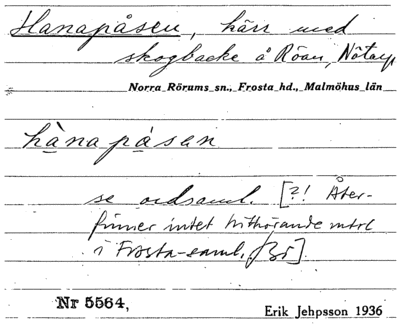 Hanapåsen, kärr med
skogbacke å Röan, Nötarp
Norra Rörums sn., Frosta hd., Malmöhus län
hànapåsen
se ordsaml. [?! Åter-
finner intet hithörande mtrl
i Frosta-saml.
Nr 5564,
Erik Jehpsson 1936